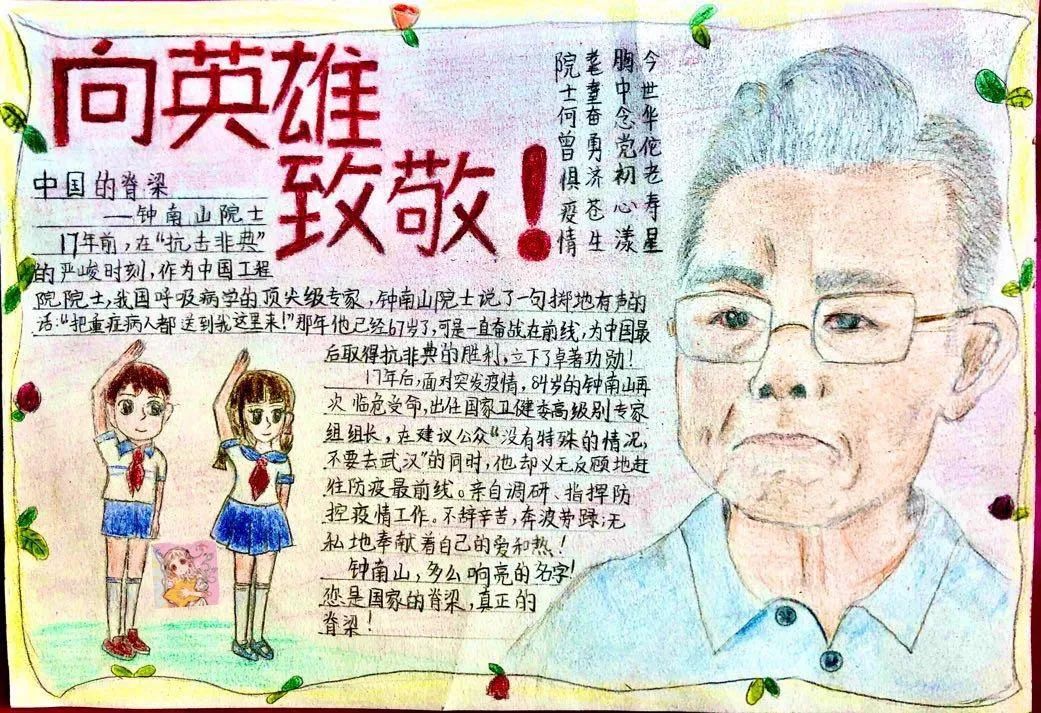 向英雄
致敬！
今世华佗老寿星
胸中念党初心漾
耄耋奋勇济苍生
院士何曾惧疫情
中国的脊梁
——钟南山院士
17年前，在“抗击非典”
的严峻时刻，作为中国工程
院院士，我国呼吸病学的顶尖级专家，钟南山院士说了一句掷地有声的
话：“把重症病人都送到我这里来！”那年他已经67岁了，可是一直奋战在前线，为中国最
后取得抗非典的胜利，立下了卓著功勋！
17年后，面对突发疫情，84岁的钟南山再
次临危受命，出任国家卫健委高级别专家
组组长，在建议公众“没有特殊的情况，
不要去武汉”的同时，他却义无反顾地赶
往防疫最前线。亲自调研、指挥防
控疫情工作。不辞辛苦，奔波劳碌；无
私地奉献着自己的爱和热！
钟南山，多么响亮的名字！
您是国家的脊梁，真正的
脊梁！